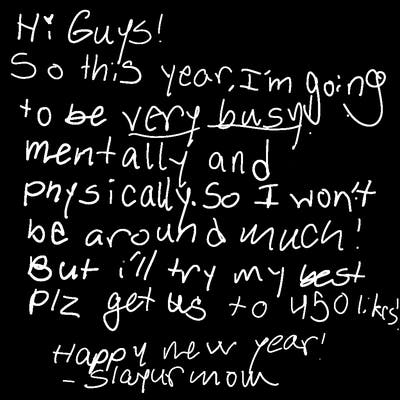 Hi Guys!
So this year, I'm going
to be very busy!
mentally and
physically. So I won't
be around much!
But i'll try my best
Plz get us to 450 likes!
Happy new year!
- Slayurmom